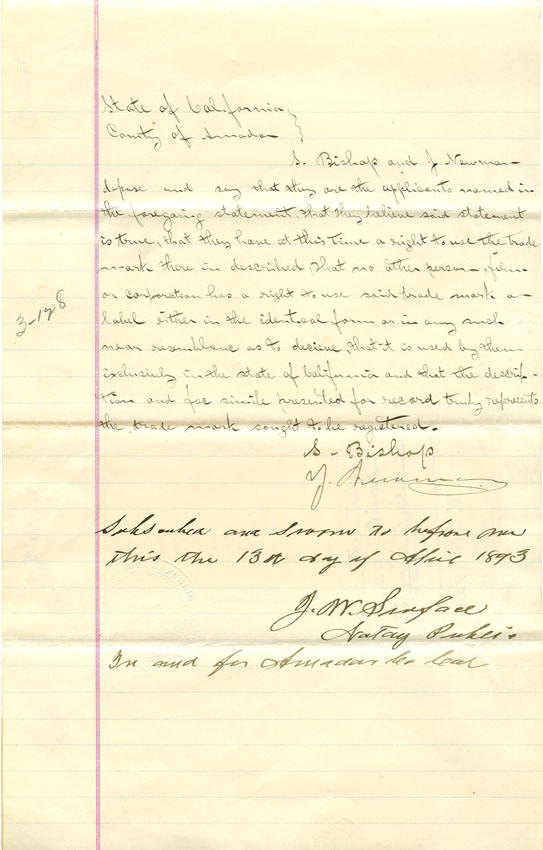 State of California }
County of Amador }
S. Bishop and J Newman
depose and say that they are the applicants named in
the foregoing statement, that they believe said statement
is true, that they have at this time a right to use the trade
mark there in described, that no other person, firm
or corporation has a right to use said trade mark or
label either in the identical form or in any such
near resemblanc as to decieve, that it is used by them
exclusively in the state of California and that the descrip-
tion and fac simile presented for record truly represents
the trade mark sought to be registered.
S - Bishop
J. Newman
Subscribed and Sworn to before me
this the 13th day of April 1893
J. W. Surface
Notary Public
In and for Amador Co Cal
3-128